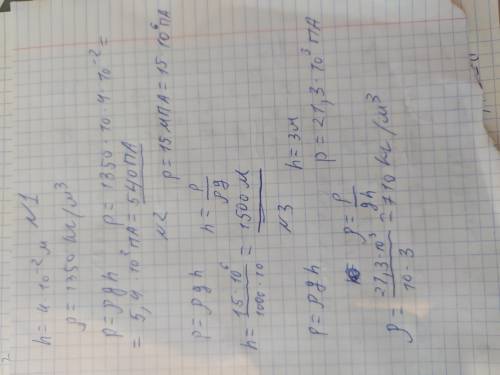 №1
h = 4·10⁻² м
ρ = 1350 кг/м³
p = ρgh p = 1350·10·4·10⁻² =
= 5,4·10² ПА = 540 ПА
№2
p = 15 МПА = 15·10⁶ ПА
p = ρgh h = p/ρg
h = 15·10⁶/1000·10 = 1500 м
№3
h = 3м
p = 21,3·10³ ПА
p = ρgh ρ = p/gh
ρ = 21,3·10³/10·3 = 710 кг/м³